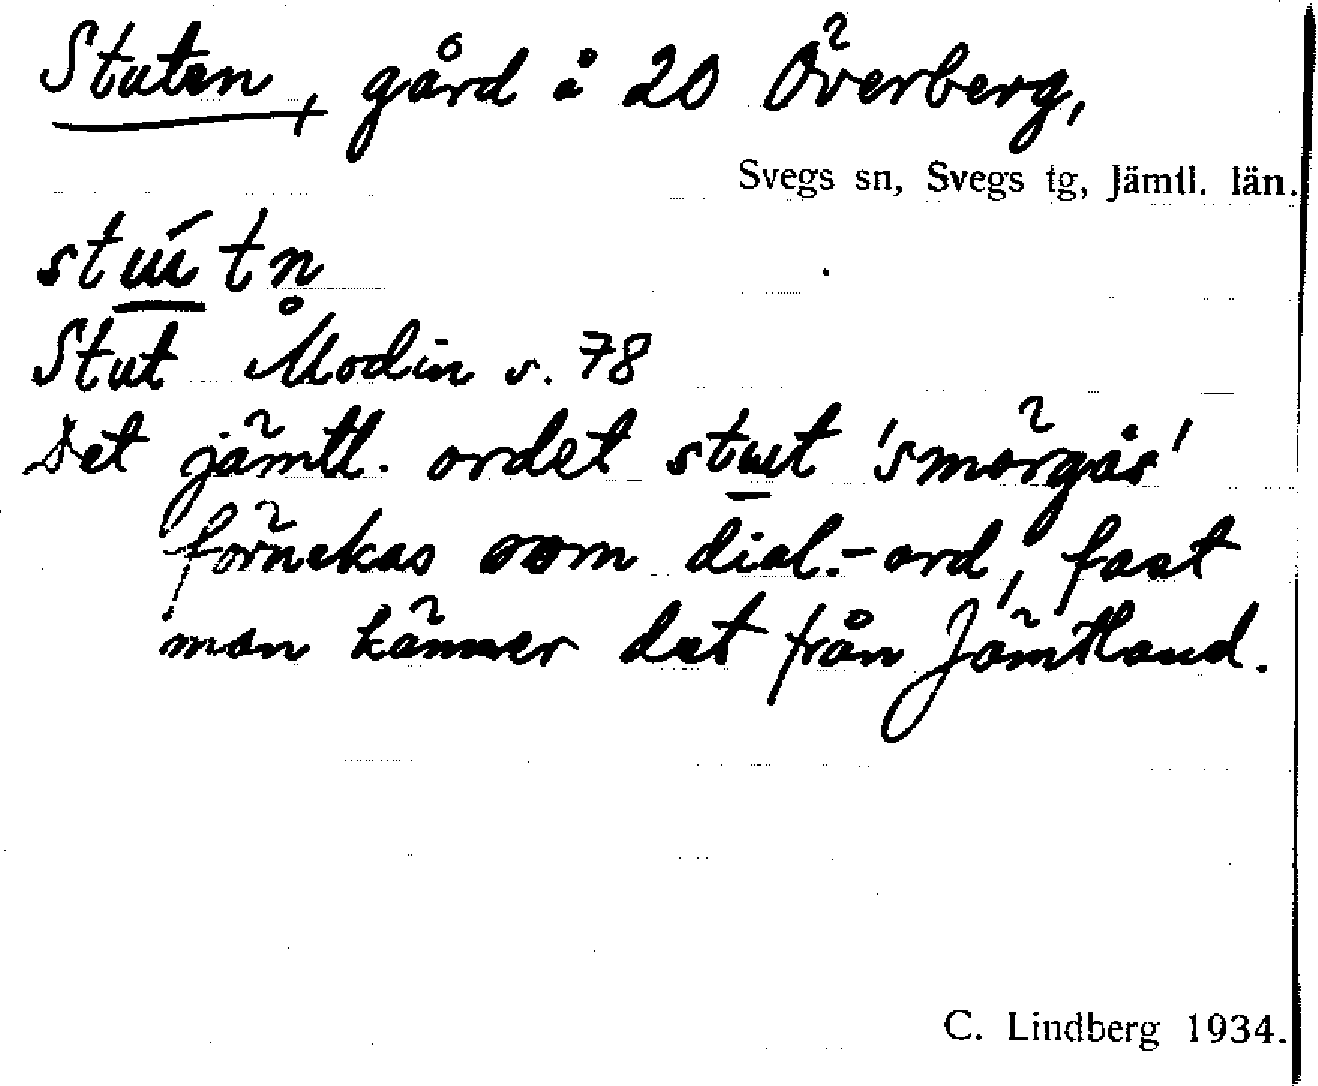 Stuten, gård i 20 Överberg,
Svegs sn, Svegs tg, Jämtl. län.
stɯ́tn̥
Stut Modin s. 78
Det jämtl. ordet stɯt 'smörgås'
förnekas som dial.-ord, fast
man känner det från Jämtland.
C. Lindberg 1934.